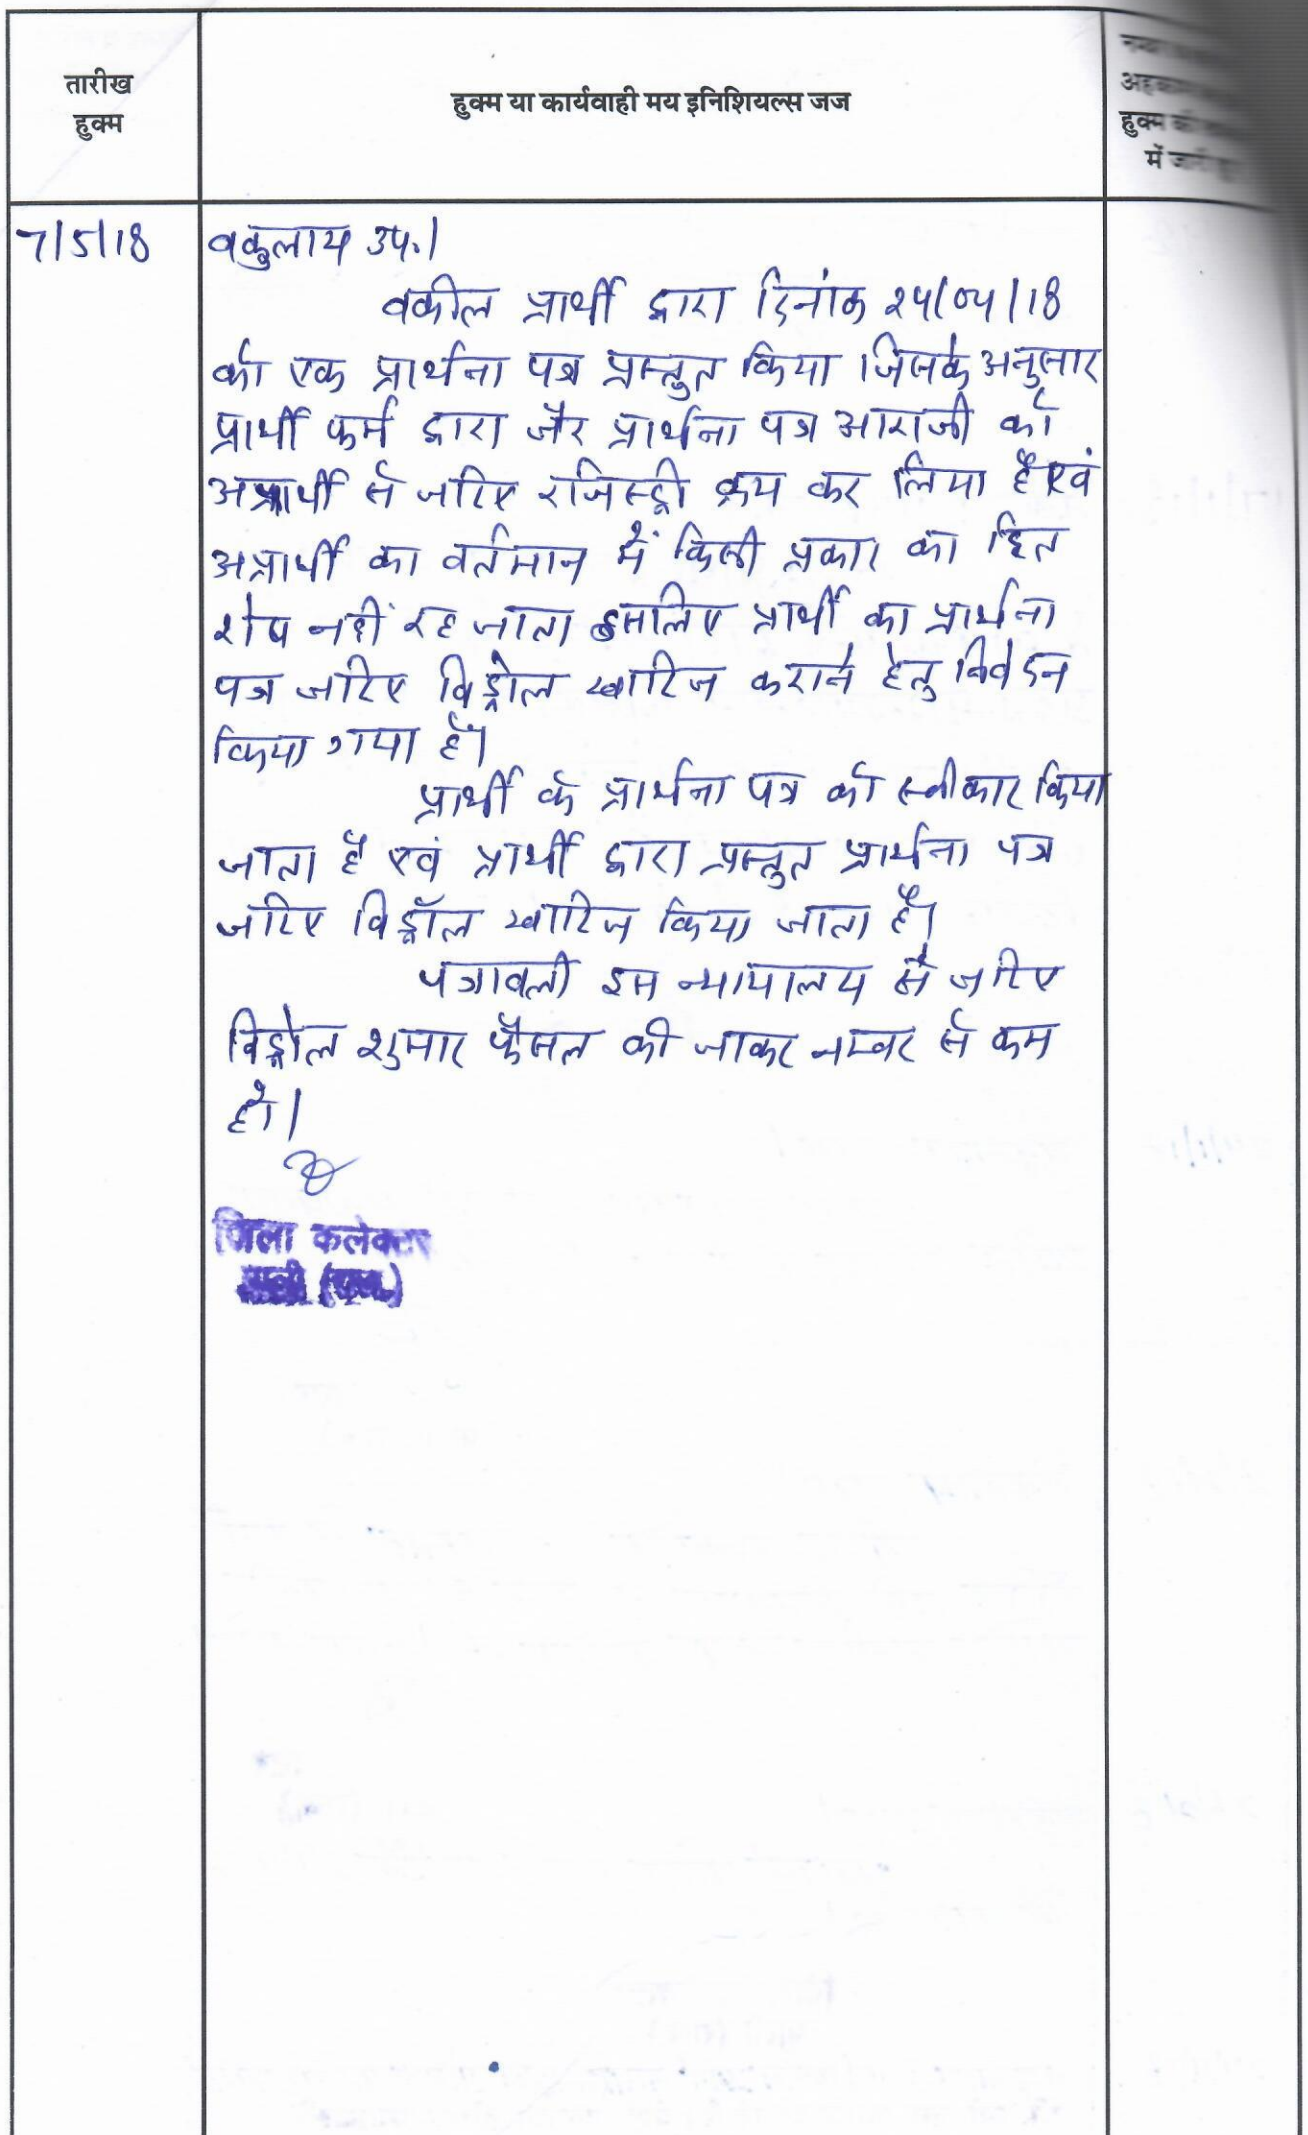 तारीख
हुक्म
हुक्म या कार्यवाही मय इनिशियल्स जज
हुक्म की
में जारी
7/5/18
वकुलाय उप.।
वकील प्रार्थी द्वारा दिनांक 24/04/18
को एक प्रार्थना पत्र प्रस्तुत किया जिसके अनुसार
प्रार्थी फर्म द्वारा जैर प्रार्थना पत्र आराजी को
अप्रार्थी से जरिए रजिस्ट्री क्रय कर लिया है एवं
अप्रार्थी का वर्तमान में किसी प्रकार का हित
शेष नहीं रह जाता इसलिए प्रार्थी का प्रार्थना
पत्र जरिए विड्रोल खारिज कराने हेतु निवेदन
किया गया है।
प्रार्थी के प्रार्थना पत्र को स्वीकार किया
जाता है एवं प्रार्थी द्वारा प्रस्तुत प्रार्थना पत्र
जरिए विड्रॉल खारिज किया जाता है।
पत्रावली इस न्यायालय से जरिए
विड्रोल शुमार फैसल की जाकर नम्बर से कम
हो।
जिला कलेक्टर
(राज.)